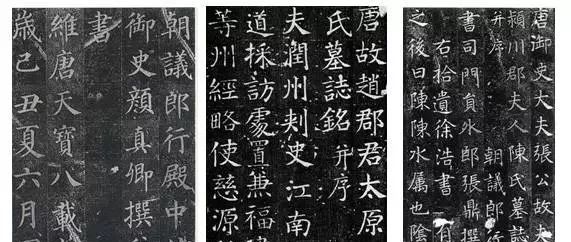 朝議郎行殿中
御史顏真卿撰
書
維唐天寶八載
歲己丑夏六月
唐故趙郡君太原
氏墓誌銘并序
夫潤州刺史江南
道採訪處置兼福
等州經略使慈源
唐御史大夫張公故夫
潁川郡夫人陳氏墓誌
并序 朝議郎行
書司門員外郎張鼎撰
右拾遺徐浩書
之後曰陳陳水屬也陰